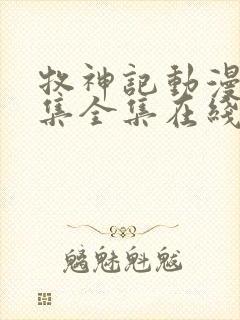 牧神記動漫
集全集在綫
魑魅魁魃